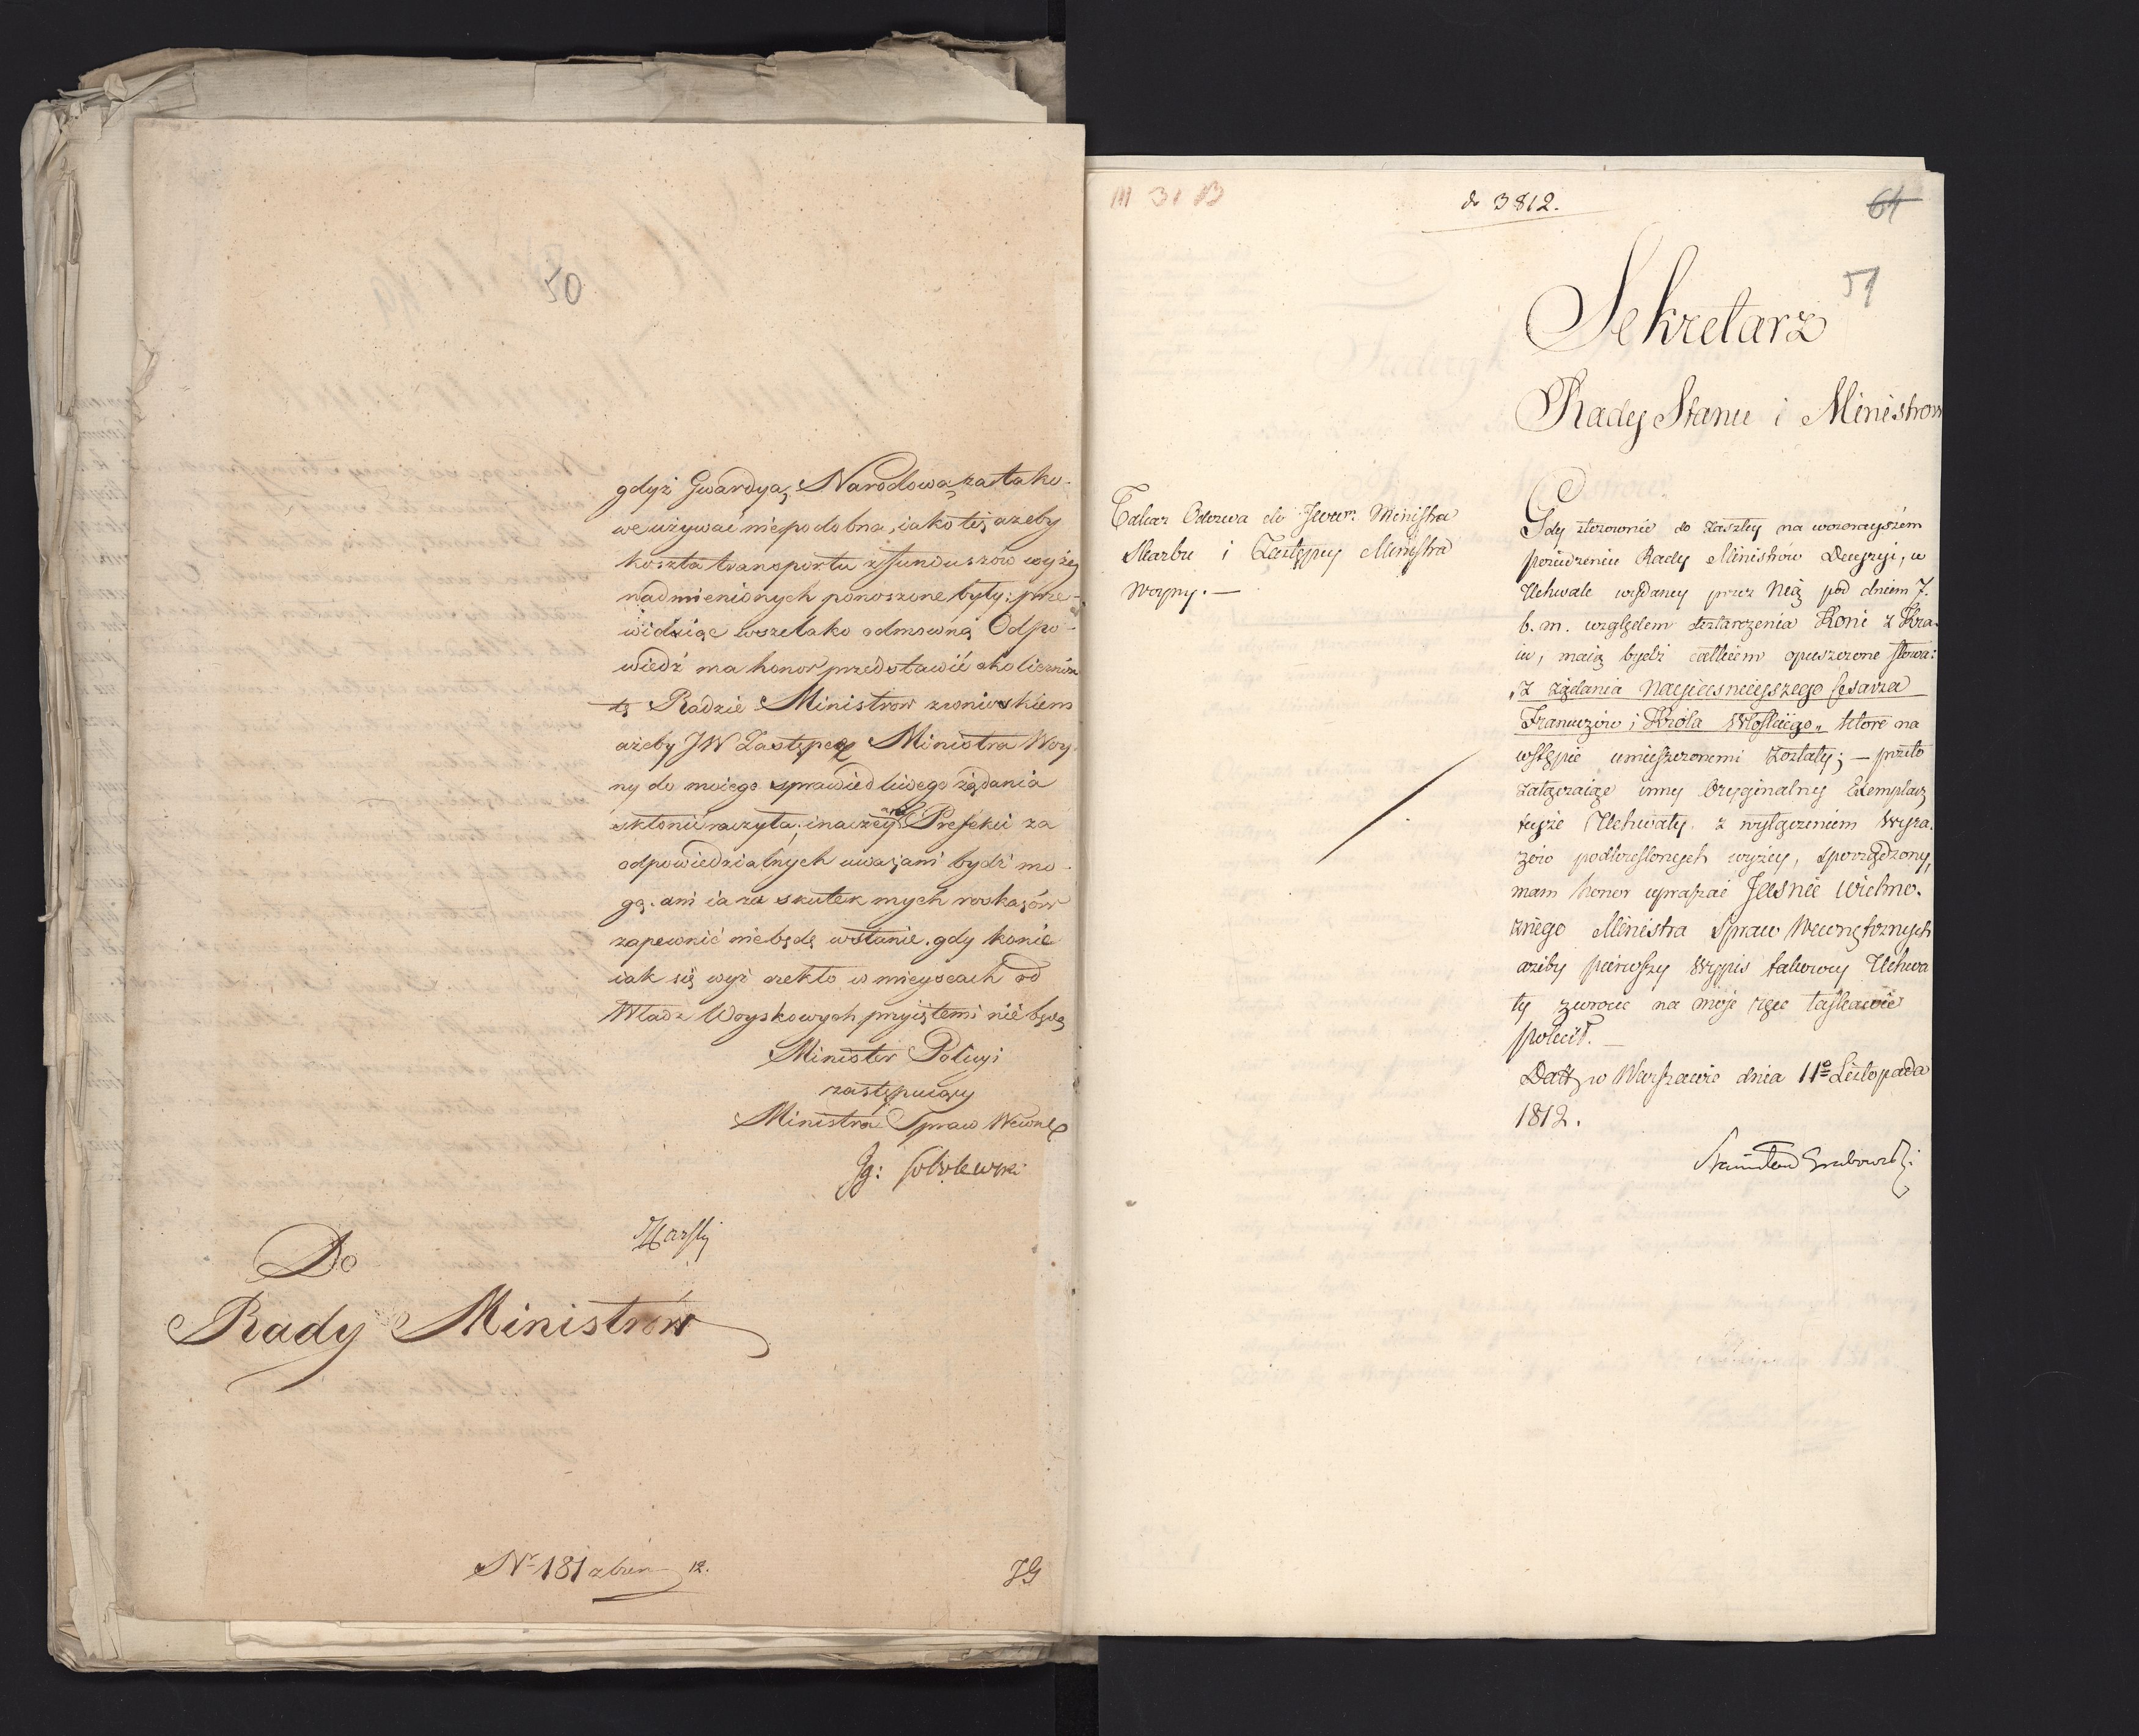 50
gdyż Gwardya Narodowa za tako-
we używać niepodobna, iako też azeby
koszta transportu z funduszów wyżej
nadmienionych ponoszone były; prze-
widuiąc wszelako odmowną Odpo-
wiedź ma honor przedstawić okoliczność
tę Radzie Ministrow z wnioskiem
ażeby JW Zastępcę Ministra Woy-
ny do moiego sprawiedliwego żądania
skłonić raczyła; inaczey ani Prefekci za
odpowiedzialnych uważani bydź mo-
gą. ani ia za skutek mych roskazów
zapewnić niebędę wstanie. gdy konie
iak się wyż rzekło w mieyscach od
Władz Woyskowych przyiętemi nie będą
Minister Policyi
zastępuiący
Ministra Spraw Wewnę
Ig: Sobolewski
Do
Rady Ministrów
Nº 181 12.
JG
M 31 B
do 3812.
64
51
Sekretarz
Rady Stanu i Ministrow
Takaz Odezwa do Jwwn. Ministra
Skarbu i Zastępcy Ministra
Woyny. —
Gdy stosownie do zaszłey na wczorayszém
posiedzeniu Rady Ministrów Decyzyi, w
Uchwale wydaney przez Nię pod dniem 7.
b. m. względem dostarczenia Koni z Kra-
iu, maią bydź całkiem opuszczone słowa:
„z żądania Nayiaśnieyszego Cesarza
Francuzów i Króla Włoskiego„ które na
wstępie umieszczonemi zostały; — przeto
załączaiąc inny Oryginalny Exemplarz
teyże Uchwały z wyłączeniem Wyra-
zów podkreślonych wyżey, sporządzony,
mam honor upraszać Jaśnie Wielmo-
żnego Ministra Spraw Wewnętrznych
ażeby pierwszy Wypis takowey Uchwa
ły zwrócić na moje ręce łaskawie
polecił. —
Datt w Warszawie dnia 11º Listopada
1812.
Stanisław Grabowski.